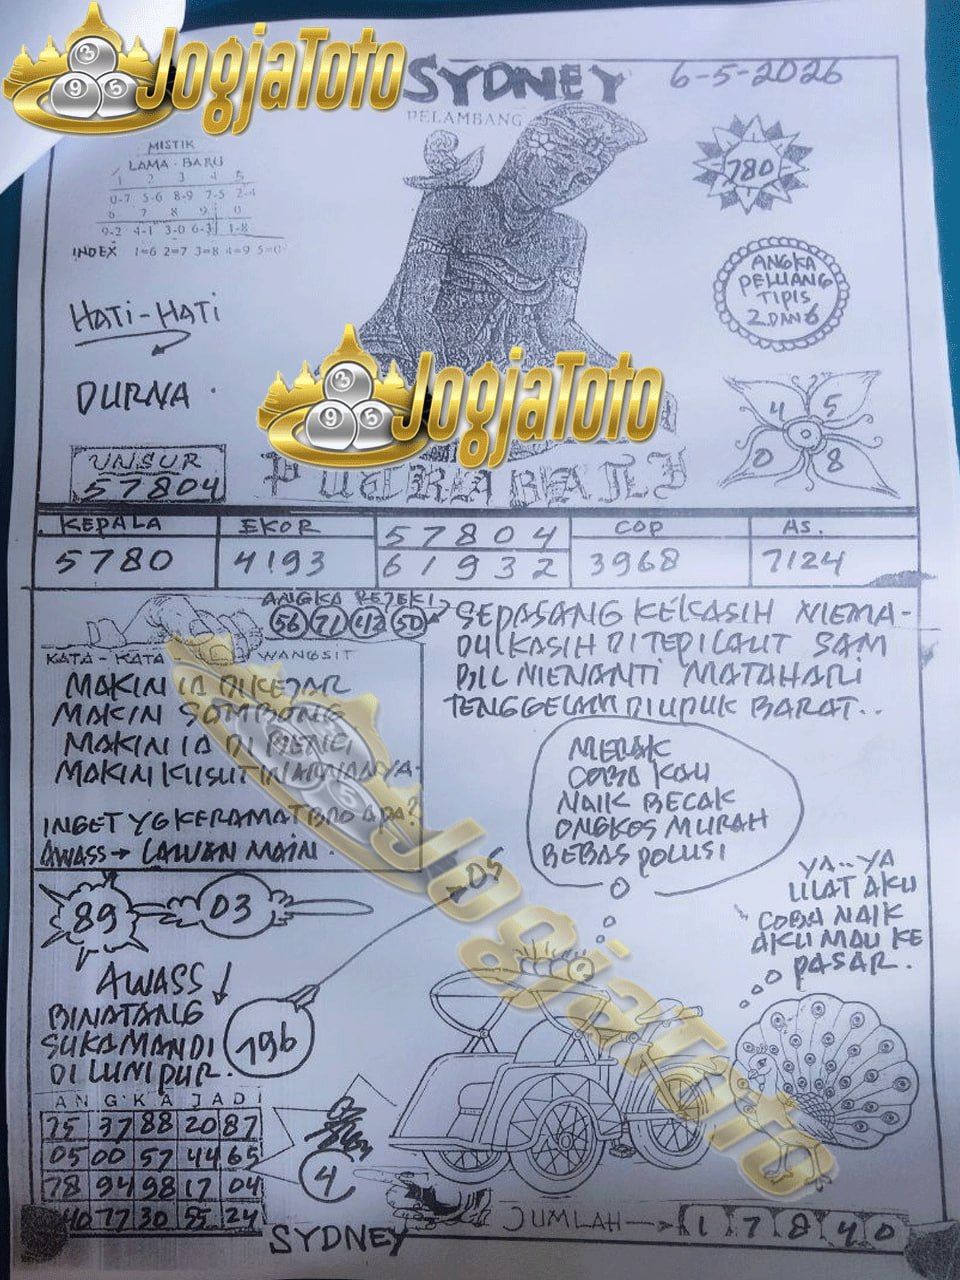 JogjaToto
SYDNEY
6-5-2026
PELAMBANG
MISTIK
LAMA - BARU
1 2 3 4 5
0-7 5-6 8-9 7-5 2-4
6 7 8 9 0
9-2 4-1 3-0 6-3 1-8
INDEX 1=6 2=7 3=8 4=9 5=0
780
HATI-HATI
ANGKA
PELUANG
TIPIS
2 DAN 6
DURNA
JogjaToto
4 5
0 8
UNSUR
57804
PUTRA BALI
KEPALA EKOR 57804 COP AS.
5780 4193 61932 3968 7124
ANGKA REJEKI
56 71 42 50
KATA - KATA WANGSIT
MAKIN IA DIKEJAR
MAKIN SOMBONG
MAKIN IA DI BENCI
MAKIN KUSUT
INGET YG KERAMAT BRO APA?
AWASS → LAWAN MAIN.
SEPASANG KEKASIH MEMA-
DU KASIH DITEPI LAUT SAM
BIL MENANTI MATAHARI
TENGGELAM DI UPUK BARAT..
MERAK
COBA KAU
NAIK BECAK
ONGKOS MURAH
BEBAS POLUSI
YA..YA
LILAT AKU
COBA NAIK
AKU MAU KE
PASAR.
89 03
05
AWASS
BINATANG
SUKA MANDI
DI LUMPUR.
196
JogjaToto
ANGKA JADI
75 37 88 20 87
05 00 57 44 65
78 94 98 17 04
40 77 30 85 24
4
SYDNEY
JUMLAH → 1 7 8 4 0